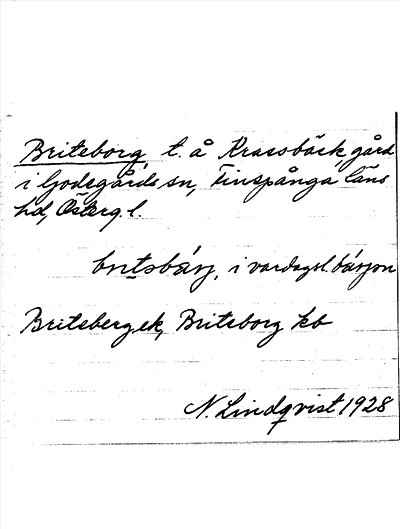 Briteborg, t. å Krassbäck, gård
i Godegårds sn, Finspånga läns
hd, Österg. l.
britəbárj, i vardagsl. bárjən
Briteberg ek, Briteborg kb
N. Lindqvist 1928